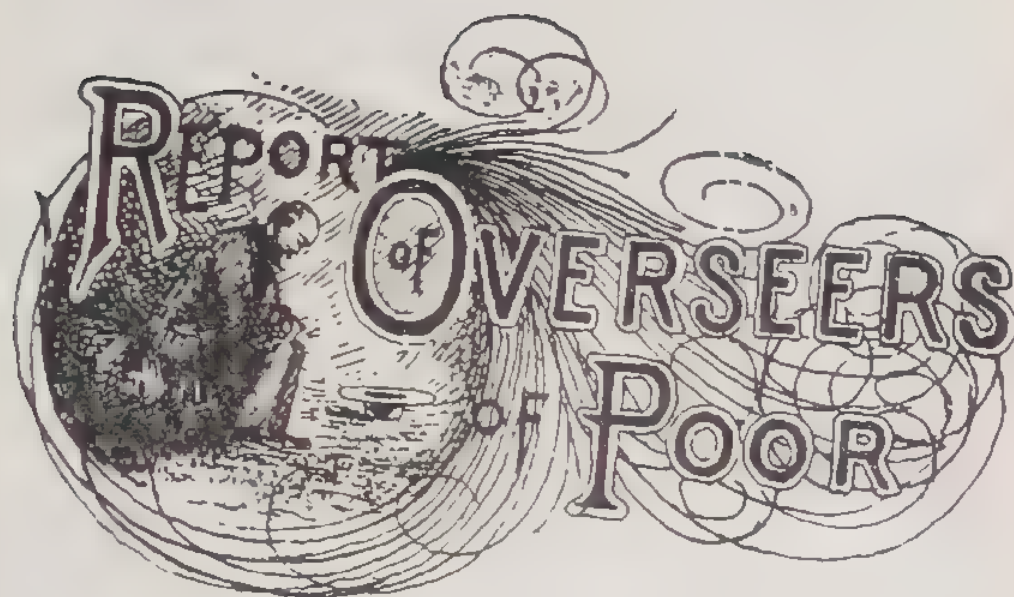 REPORT
OF OVERSEERS
OF POOR